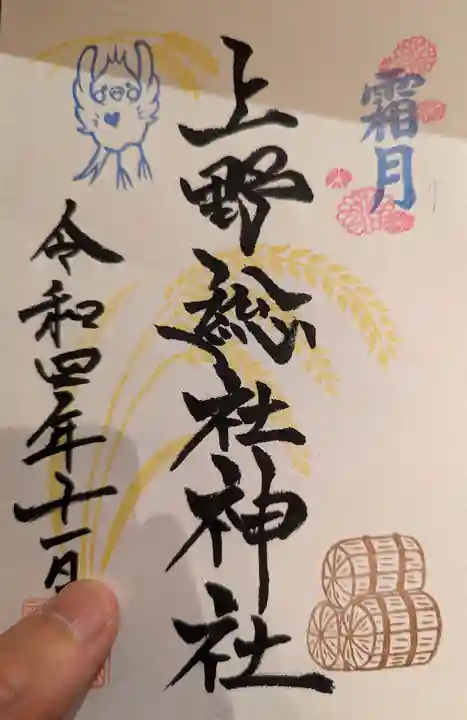 霜月
上野総社神社
令和四年十一月